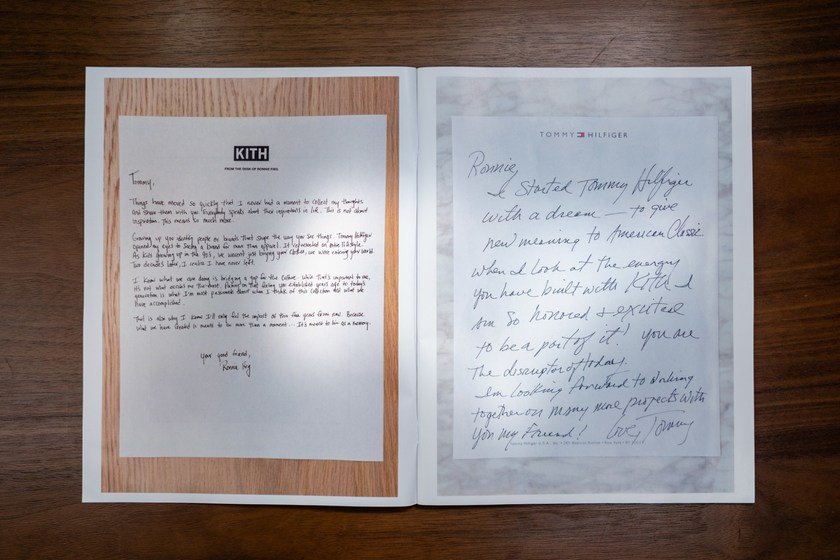 KITH
FROM THE DESK OF RONNIE FIEG
Tommy,
Things have moved so quickly that I never had a moment to collect my thoughts
and share them with you. Everybody speaks about their inspirations in life. This is not about
inspiration. This means so much more.
Growing up you identify people or brands that shape the way you see things. Tommy Hilfiger
opened my eyes to seeing a brand for more than apparel. It represented an entire lifestyle.
As kids growing up in the 90's, we weren't just buying your clothes, we were entering your world.
Two decades later, I realize I have never left.
I know what we are doing is bridging a gap for the culture. While that's important to me,
it's not what excites me the most. Putting on that feeling you established years ago on today's
generation is what I'm most passionate about when I think of this collection and what we
have accomplished.
That is also why I know I'll only feel the impact of this few years from now. Because
what we have created is meant to be more than a moment - It's meant to live as a memory.
Your good friend,
Ronnie Fieg
TOMMY HILFIGER
Ronnie,
I Started Tommy Hilfiger
with a dream — to give
new meaning to American Classic
When I look at the energy
you have built with KITH I
Am so honored & excited
to be a part of it! you are
The disruptor of today.
Im looking forward to working
together on many more projects with
you my Friend! Love, Tommy